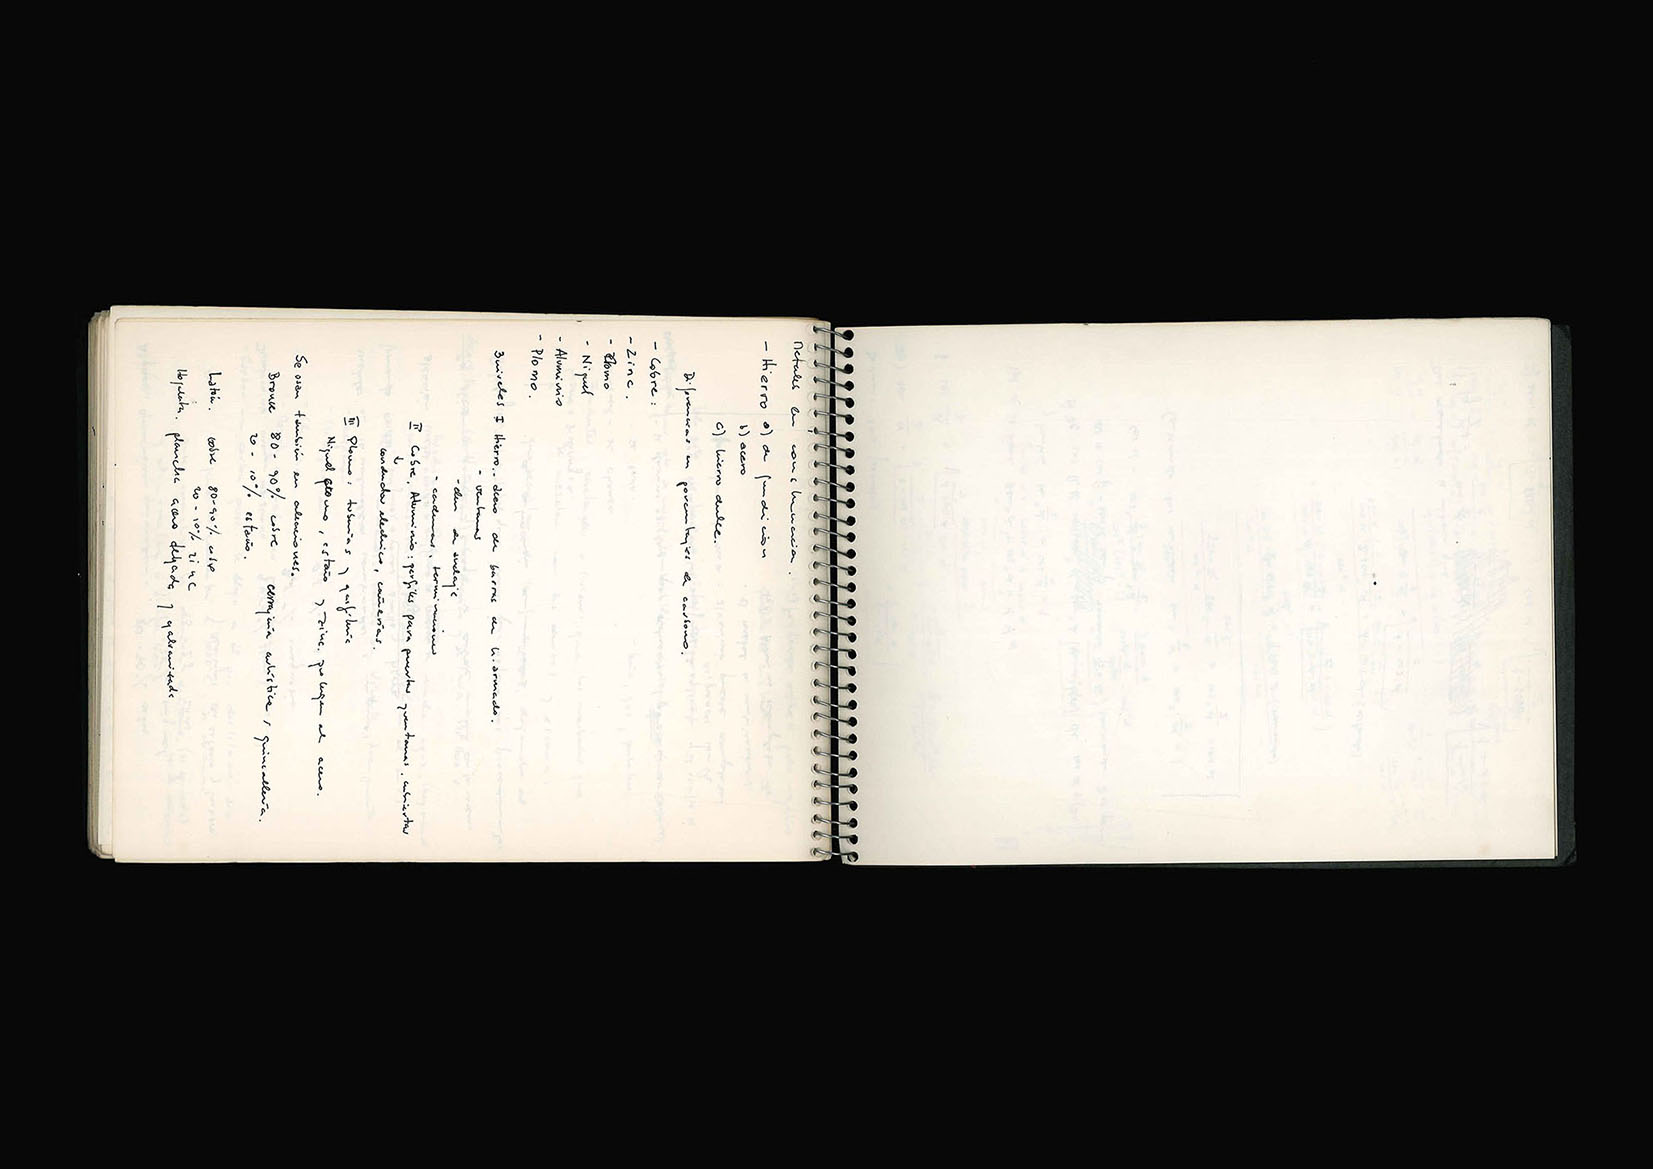 Metales en construcción.
- Hierro a) de fundición
b) acero
c) hierro dulce.
Diferencias en porcentajes de carbono.
- Cobre:
- Zinc.
- Plomo
- Niquel
- Aluminio
- Plomo.
3 niveles I Hierro.. acero en barras en h. armado.
- ventanas
- de anclaje
- cadenas, terminaciones
II Cobre, Aluminio: perfiles para puertas y ventanas, cubiertas
conductor eléctrico, cañerías.
III Plomo: tuberías y gasfitería
Niquel plomo, estaño y zinc, protegen al acero.
Se usan también en aleaciones.
Bronce 80 - 90% cobre cerrajería artística, quincallería.
20 - 10% estaño.
Latón. cobre 80-90% cobre
20 - 10% zinc
Hojalata. plancha acero delgado y galvanizado